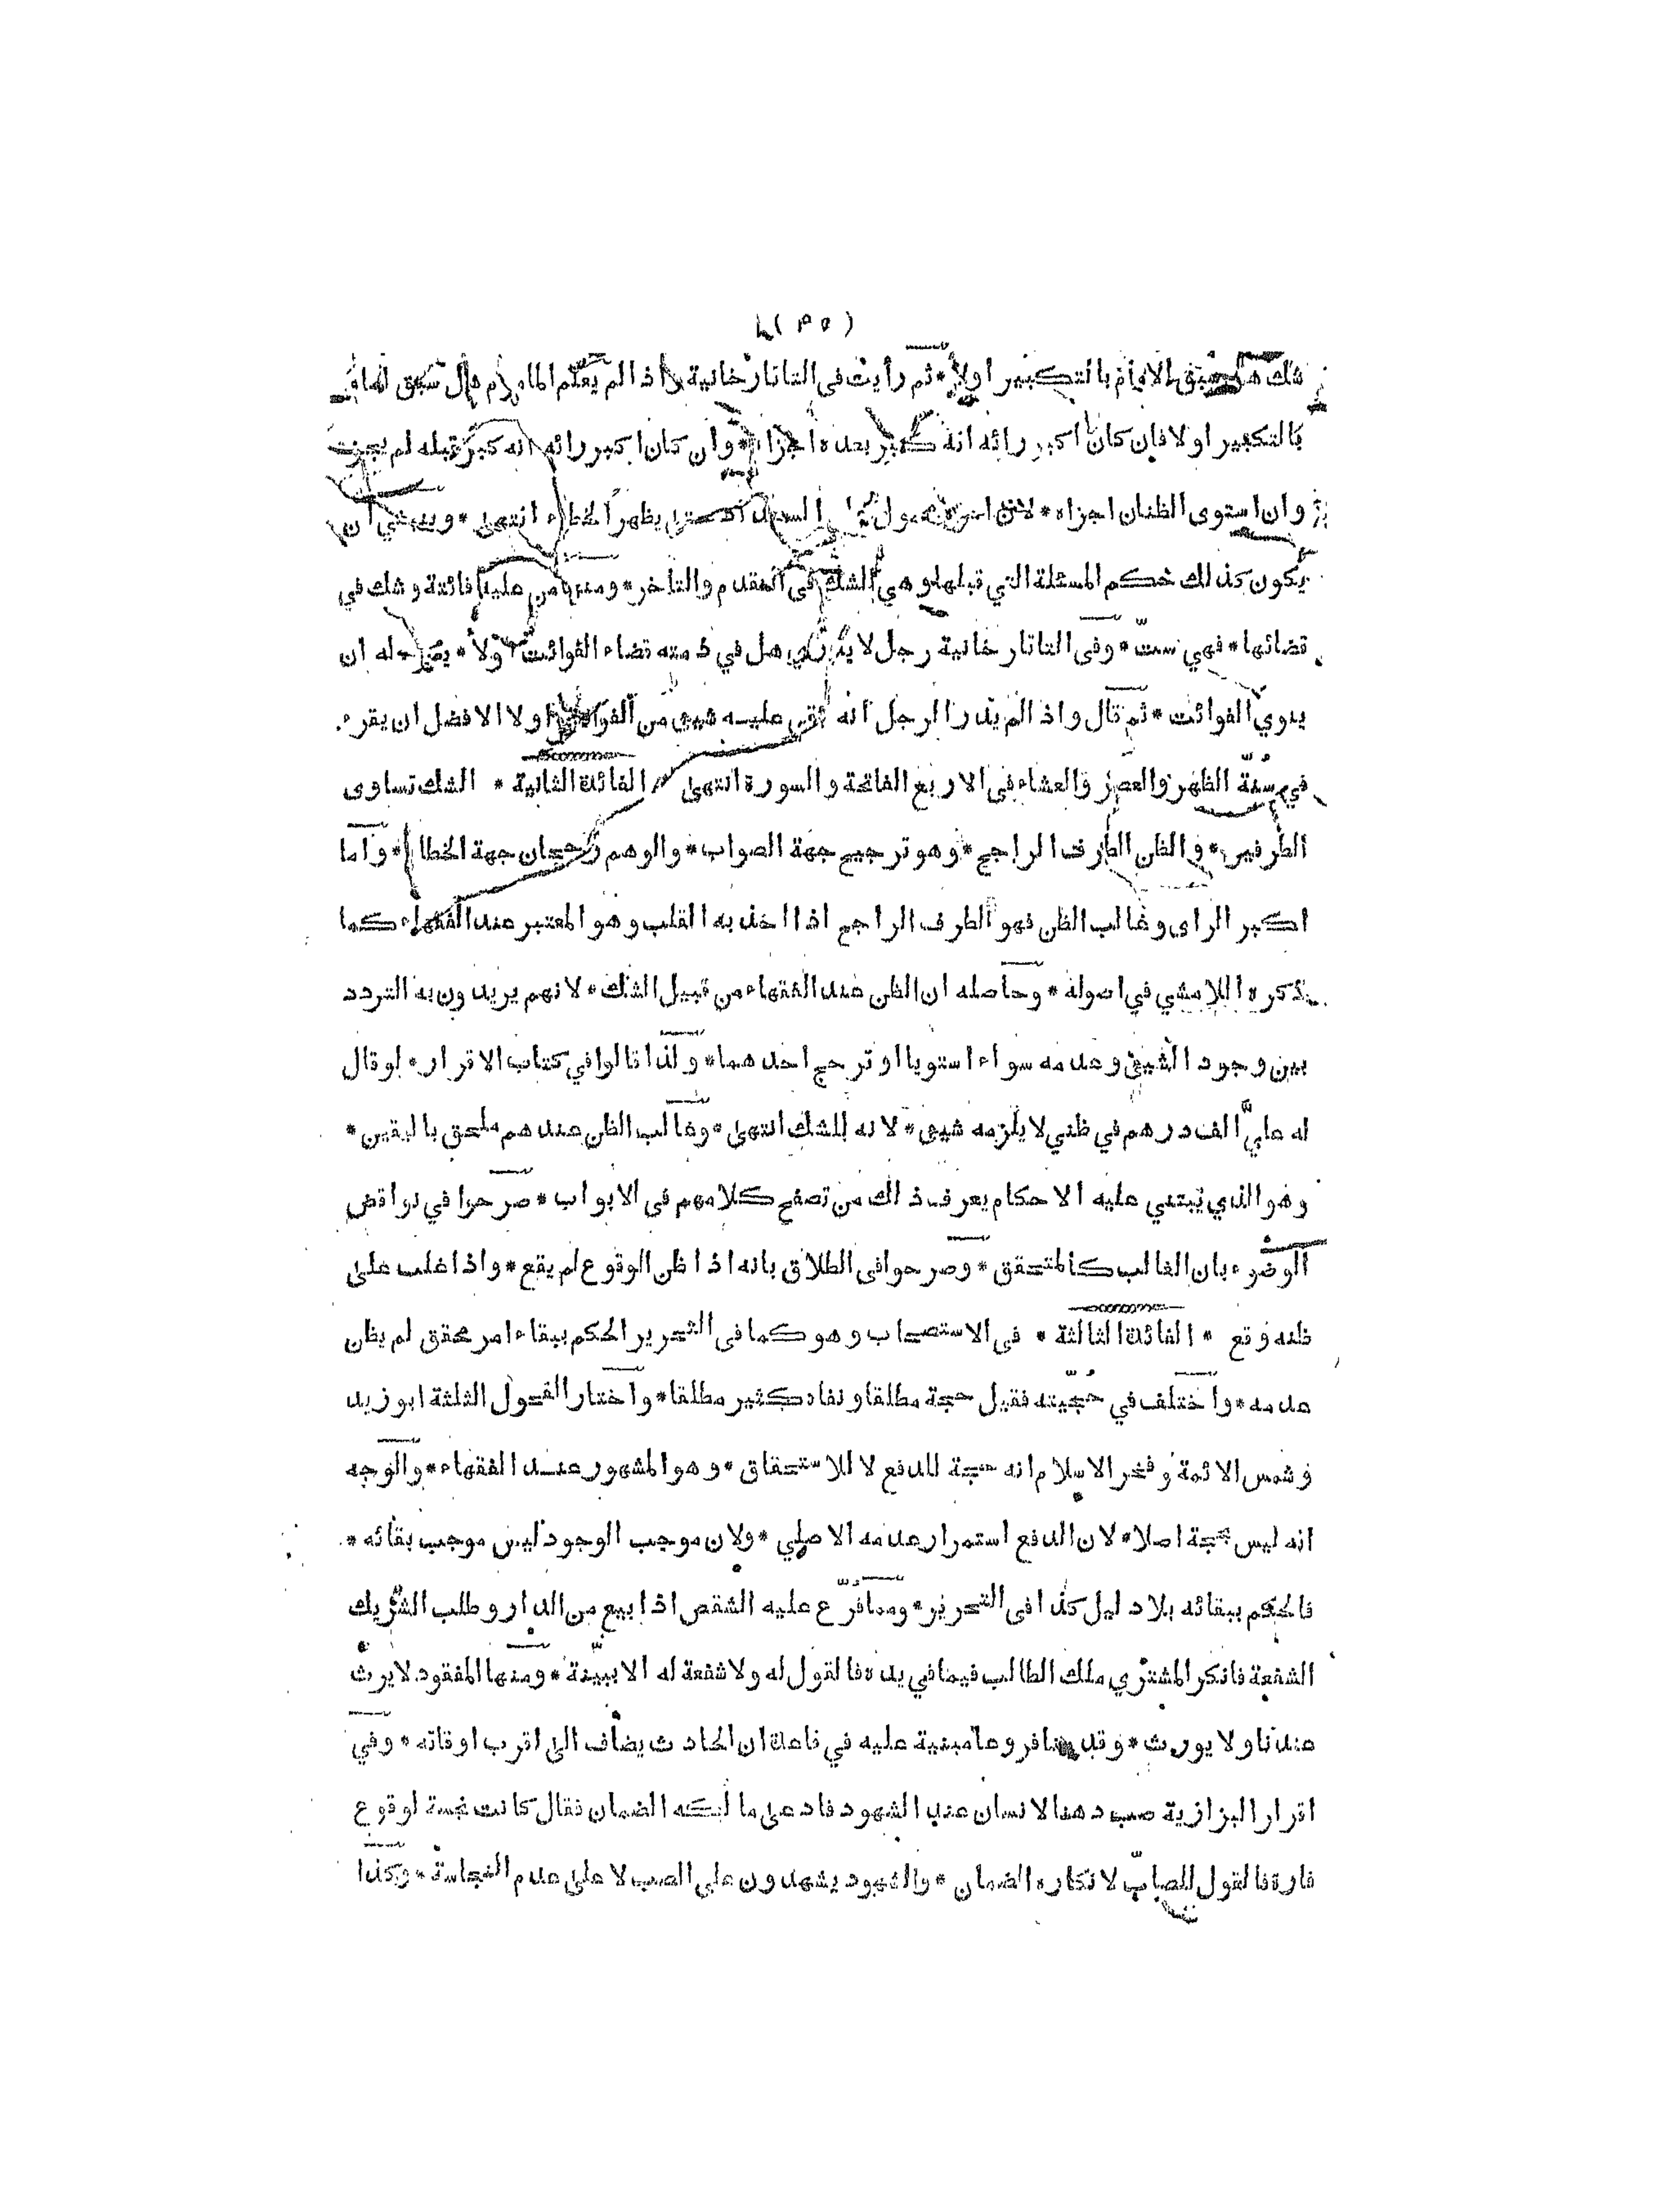 ( ٣٥ )
شك هل سبق الامام بالتكبير اولا * ثم رأيت في التاتارخانية اذا لم يعلم المأموم هل سبق امامه
بالتكبير اولا فان كان اكبر رائه انه كبر بعده اجزاه * وان كان اكبر رائه انه كبر قبله لم يجزه
وان استوى الظنان اجزاه * لان امره محمول على السداد حتى يظهر الخطاء انتهى * وينبغي ان
يكون كذلك حكم المسئلة التي قبلها وهي الشك في التقدم والتاخر * ومنها من عليه فائتة وشك في
قضائها * فهي ست * وفي التاتارخانية رجل لا يدري هل في ذمته قضاء الفوائت اولا * يكره له ان
ينوي الفوائت * ثم قال واذا لم يدر الرجل انه بقي عليه شيئ من الفوائت اولا الافضل ان يقرء
في سنة الظهر والعصر والعشاء في الاربع الفاتحة والسورة انتهى * الفائدة الثانية * الشك تساوى
الطرفين * والظن الطرف الراجح * وهو ترجيح جهة الصواب * والوهم رجحان جهة الخطاء * واما
اكبر الراى وغالب الظن فهو الطرف الراجح اذا اخذ به القلب وهو المعتبر عند الفقهاء كما
ذكره اللامشي في اصوله * وحاصله ان الظن عند الفقهاء من قبيل الشك * لانهم يريدون به التردد
بين وجود الشيئ وعدمه سواء استويا او ترجح احدهما * ولذا قالوا في كتاب الاقرار * لو قال
له عليّ الف درهم في ظني لا يلزمه شيئ * لانه للشك انتهى * وغالب الظن عندهم ملحق باليقين *
وهو الذي يبتني عليه الاحكام يعرف ذلك من تصفح كلامهم في الابواب * صرحوا في نواقض
الوضوء بان الغالب كالمتحقق * وصرحوا في الطلاق بانه اذا ظن الوقوع لم يقع * واذا غلب على
ظنه وقع * الفائدة الثالثة * في الاستصحاب وهو كما في التحرير الحكم ببقاء امر محقق لم يظن
عدمه * واختلف في حجّيته فقيل حجة مطلقا ونفاه كثير مطلقا * واختار الفحول الثلثة ابو زيد
وشمس الائمة وفخر الاسلام انه حجة للدفع لا للاستحقاق * وهو المشهور عند الفقهاء * والوجه
انه ليس بحجة اصلا * لان الدفع استمرار عدمه الاصلي * ولان موجب الوجود ليس موجب بقائه *
فالحكم ببقائه بلا دليل كذا في التحرير * ومما فرّع عليه الشقص اذا بيع من الدار وطلب الشريك
الشفعة فانكر المشتري ملك الطالب فيما في يده فالقول له ولا شفعة له الا ببيّنة * ومنها المفقود لا يرث
عندنا ولا يورث * وقد فروعا مبنية عليه في قاعدة ان الحادث يضاف الى اقرب اوقاته * وفي
اقرار البزازية صب دهنا لانسان عند الشهود فادعى مالكه الضمان فقال كانت نجسة لوقوع
فارة فالقول للصابّ لانكاره الضمان * والشهود يشهدون على الصب لا على عدم النجاسة * وكذا